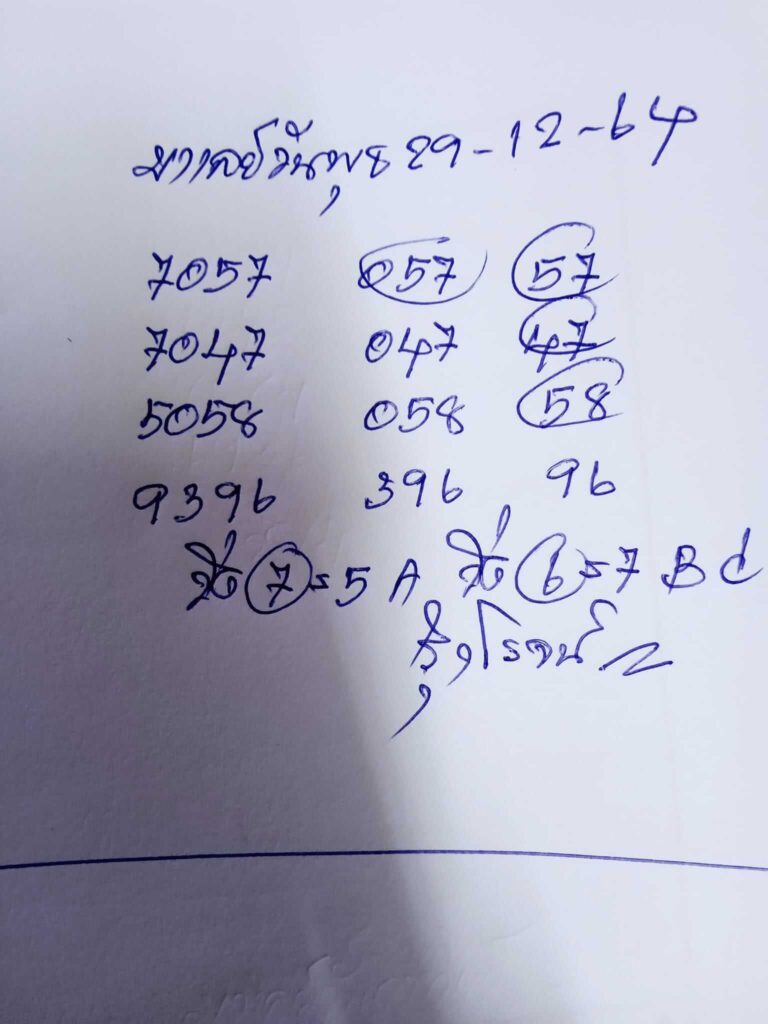 มาเลย์วันพุธ 29-12-64
7057 057 57
7047 047 47
5058 058 58
9396 396 96
วิ่ง 7=5 A วิ่ง 6=7 B C